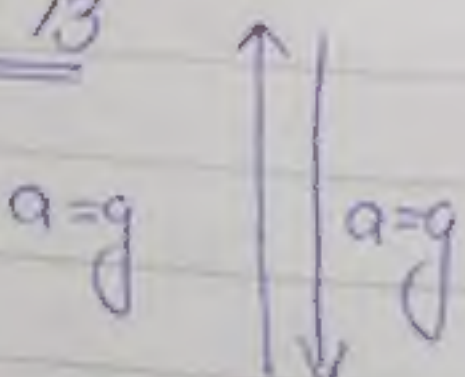 13
a=g a=g